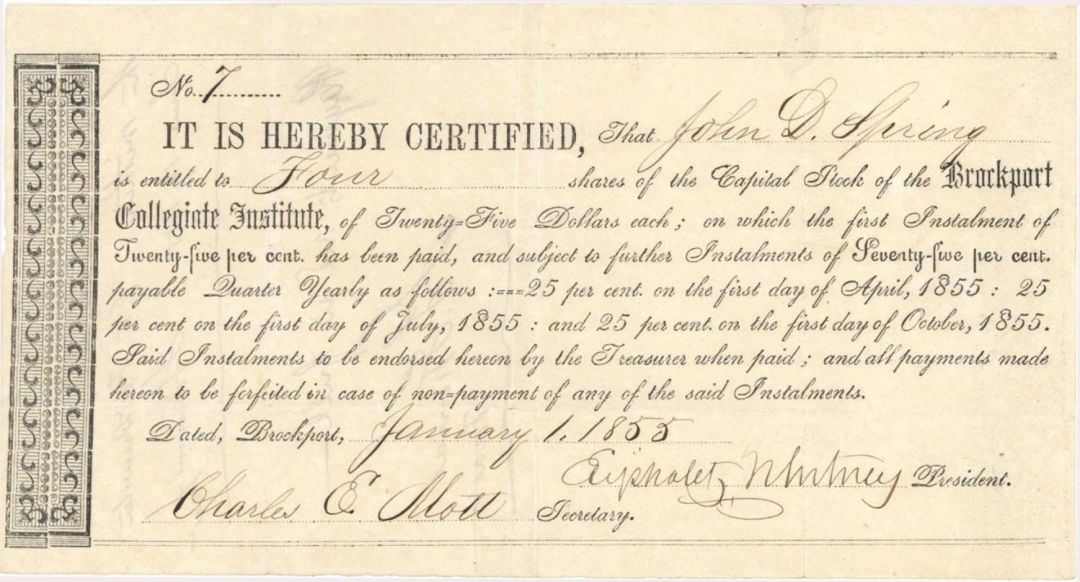 No. 7
IT IS HEREBY CERTIFIED, That John D. Spring
is entitled to Four shares of the Capital Stock of the Brockport
Collegiate Institute, of Twenty=Five Dollars each; on which the first Instalment of
Twenty-five per cent. has been paid, and subject to further Instalments of Seventy-five per cent.
payable Quarter Yearly as follows :===25 per cent. on the first day of April, 1855 : 25
per cent on the first day of July, 1855 : and 25 per cent. on the first day of October, 1855.
Said Instalments to be endorsed hereon by the Treasurer when paid ; and all payments made
hereon to be forfeited in case of non=payment of any of the said Instalments.
Dated, Brockport, January 1. 1855
Eliphalet Whitney President.
Charles E. Mott Secretary.